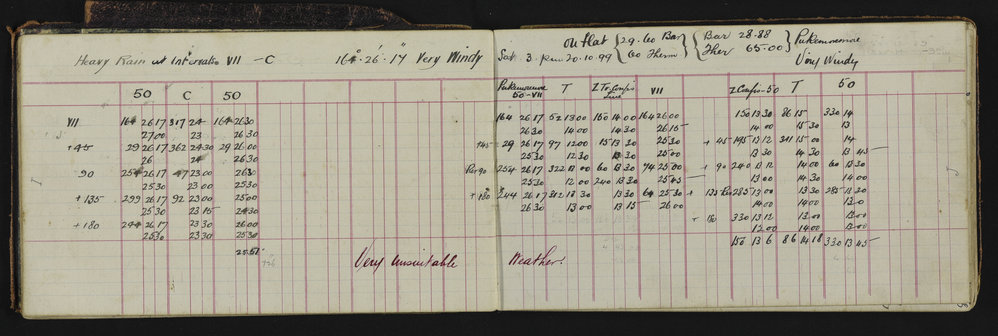 Heavy Rain at intervals VII - C 164° 26' 17" Very Windy
50 C 50
VII 164 26 17 317 24 164 26 30
27 00 23 26 30
+45 29 26 17 362 24 30 29 26 00
26 24 26 30
90 254 26 17 47 23 00 26 30
25 30 23 00 25 30
+135 299 26 17 92 23 00 25 00
25 30 23 15 24 30
+180 244 26 17 23 30 26 00
25 30 23 30 25 30
25 51
Very unsuitable
On flat 29.60 Bar Bar 28.88
Sat 3. p.m 20.10.99 60 Therm Ther 65.00 Very Windy
50-VII T VII 50 T 50
164 26 17 52 13 00 150 14 00 164 26 00 150 13 30 86 15 330 14
26 30 14 00 14 30 26 15 14 00 15 30 13
+45 29 26 17 97 12 00 15 13 30 25 30 +45 195 13 12 311 15 00 14
25 30 12 30 13 30 25 00 13 30 14 30 13 45
254 26 17 322 12 00 60 13 30 74 25 00 +90 240 13 12 14 00 60 13 30
25 30 12 00 240 13 30 25 45 13 00 14 30 14 00
+180 244 26 17 312 12 30 13 30 64 25 30 +135 285 13 00 13 30 285 13 30
26 30 13 00 13 15 26 00 14 00 14 00 13 00
330 13 12 13 00 13 00
12 00 14 00 13 00
150 13 6 86 14 18 330 13 45
Weather.